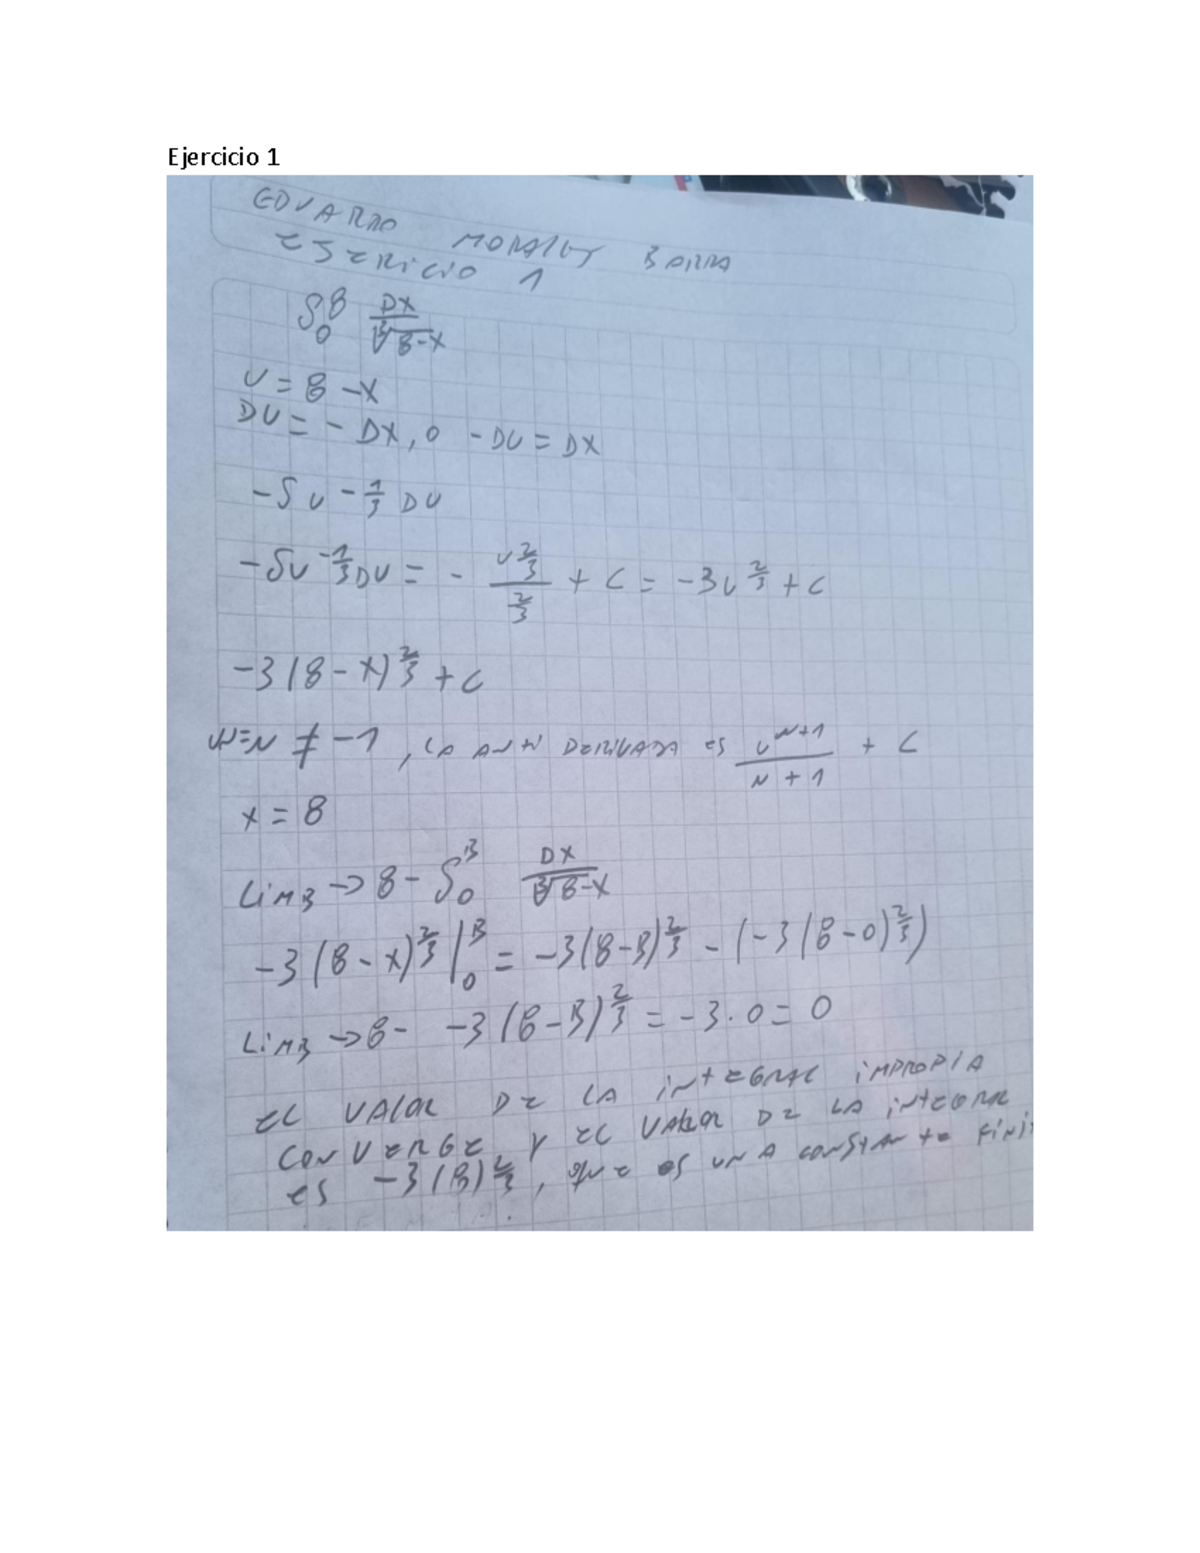 Ejercicio 1
EDUARDO MORALES BARRA
EJERICIO 1
∫₀⁸ DX / ∛(8-X)
U = 8 - X
DU = - DX, O - DU = DX
-∫ U - 1/3 DU
-∫U^(-1/3) DU = - U^(2/3) / (2/3) + C = -3U^(2/3) + C
-3(8 - X)^(2/3) + C
N ≠ -1, LA ANTI DERIVADA ES U^(N+1) / (N + 1) + C
X = 8
LiMB → 8 - ∫₀ᴮ DX / ∛(8-X)
-3(8 - X)^(2/3) |₀ᴮ = -3(8-B)^(2/3) - (-3(8-0)^(2/3))
LiMB → 8- -3(8-B)^(2/3) = -3·0 = 0
EL VALOR DE LA iNTEGRAL iMPROPIA
CONVERGE Y EL VALOR DE LA iNTEGRAL
ES -3(8)^(2/3), QUE ES UNA CONSTANTE FINI